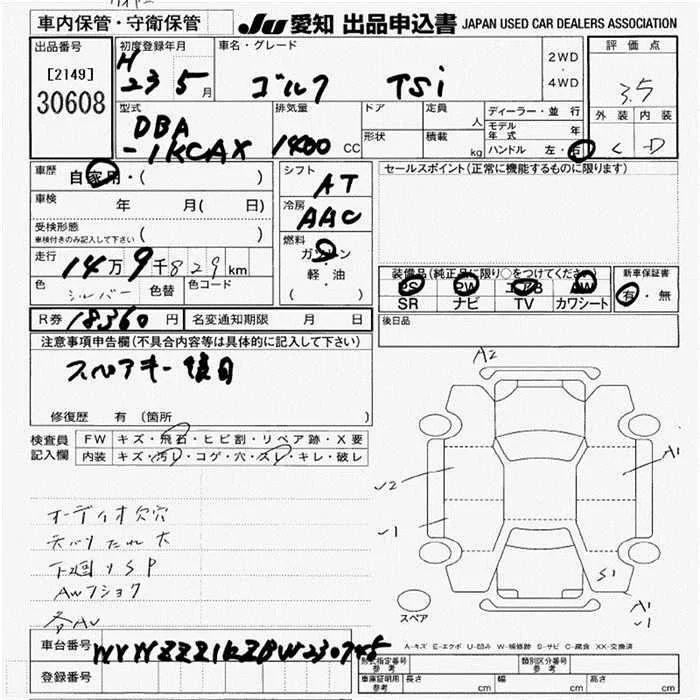 車内保管・守衛保管
JU 愛知 出品申込書 JAPAN USED CAR DEALERS ASSOCIATION
出品番号
[2149]
30608
初度登録年月
H 23 5月
車名・グレード
ゴルフ TSi
2WD
・
4WD
評価点
3.5
外装 内装
C D
型式
DBA
-1KCAX
排気量
1400 CC
ドア
形状
定員
人
積載
kg
ディーラー・並行
モデル年式 年
ハンドル 左・右
車歴
自家用・( )
車検
年 月( 日)
受検形態
車検付きのみ記入して下さい
走行
14万9千829km
色
シルバー
色替
色コード
シフト
AT
冷房
AAC
燃料
ガソリン
・
軽・油
( )
セールスポイント(正常に機能するものに限ります)
装備品(純正品に限り○をつけてください)
PS PW エアB AW
SR ナビ TV カワシート
新車保証書
有・無
R券 18360 円
名変通知期限 月 日
後日品
注意事項申告欄(不具合内容等は具体的に記入して下さい)
スペアキー後日
修復歴 有 (箇所 )
検査員
記入欄
FW キズ・飛石・ヒビ割・リペア跡・X要
内装 キズ・汚レ・コゲ・穴・スレ・キレ・破レ
オーディオ欠穴
天バリたれ大
下廻りSP
AWワショク
各AU
A2
A1
U2
U1
S1
A1
U1
スペア
A-キズ E-エクボ U-凹み W-補修跡 S-サビ C-腐食 XX-交換済
車台番号
WVWZZZ1KZBW230745
登録番号
型式指定番号
参考
類別区分番号
参考
車庫証明用
参考
長さ cm
幅 cm
高さ cm